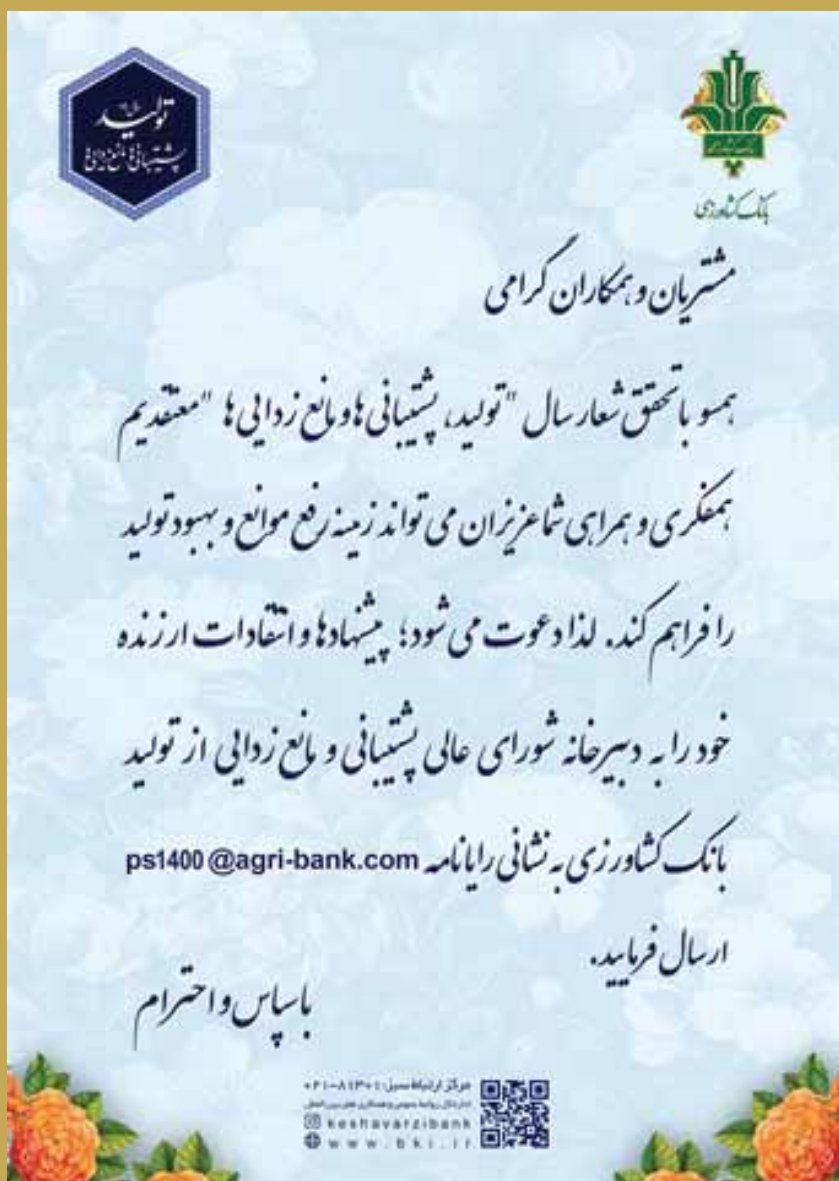 تولید
پشتیبانی‌ها مانع‌زدایی‌ها
بانک کشاورزی
مشتریان و همکاران گرامی
همسو با تحقق شعار سال "تولید، پشتیبانی ها و مانع زدایی ها" معتقدیم
همفکری و همراهی شما عزیزان می تواند زمینه رفع موانع و بهبود تولید
را فراهم کند. لذا دعوت می شود؛ پیشنهادها و انتقادات ارزنده
خود را به دبیرخانه شورای عالی پشتیبانی و مانع زدایی از تولید
بانک کشاورزی به نشانی رایانامه ps1400@agri-bank.com
ارسال فرمایید.
با سپاس و احترام
مرکز ارتباط سبز: ۸۱۳۰۱-۰۲۱
اداره کل روابط عمومی و همکاری های بین الملل
keshavarzibank
www.bki.ir